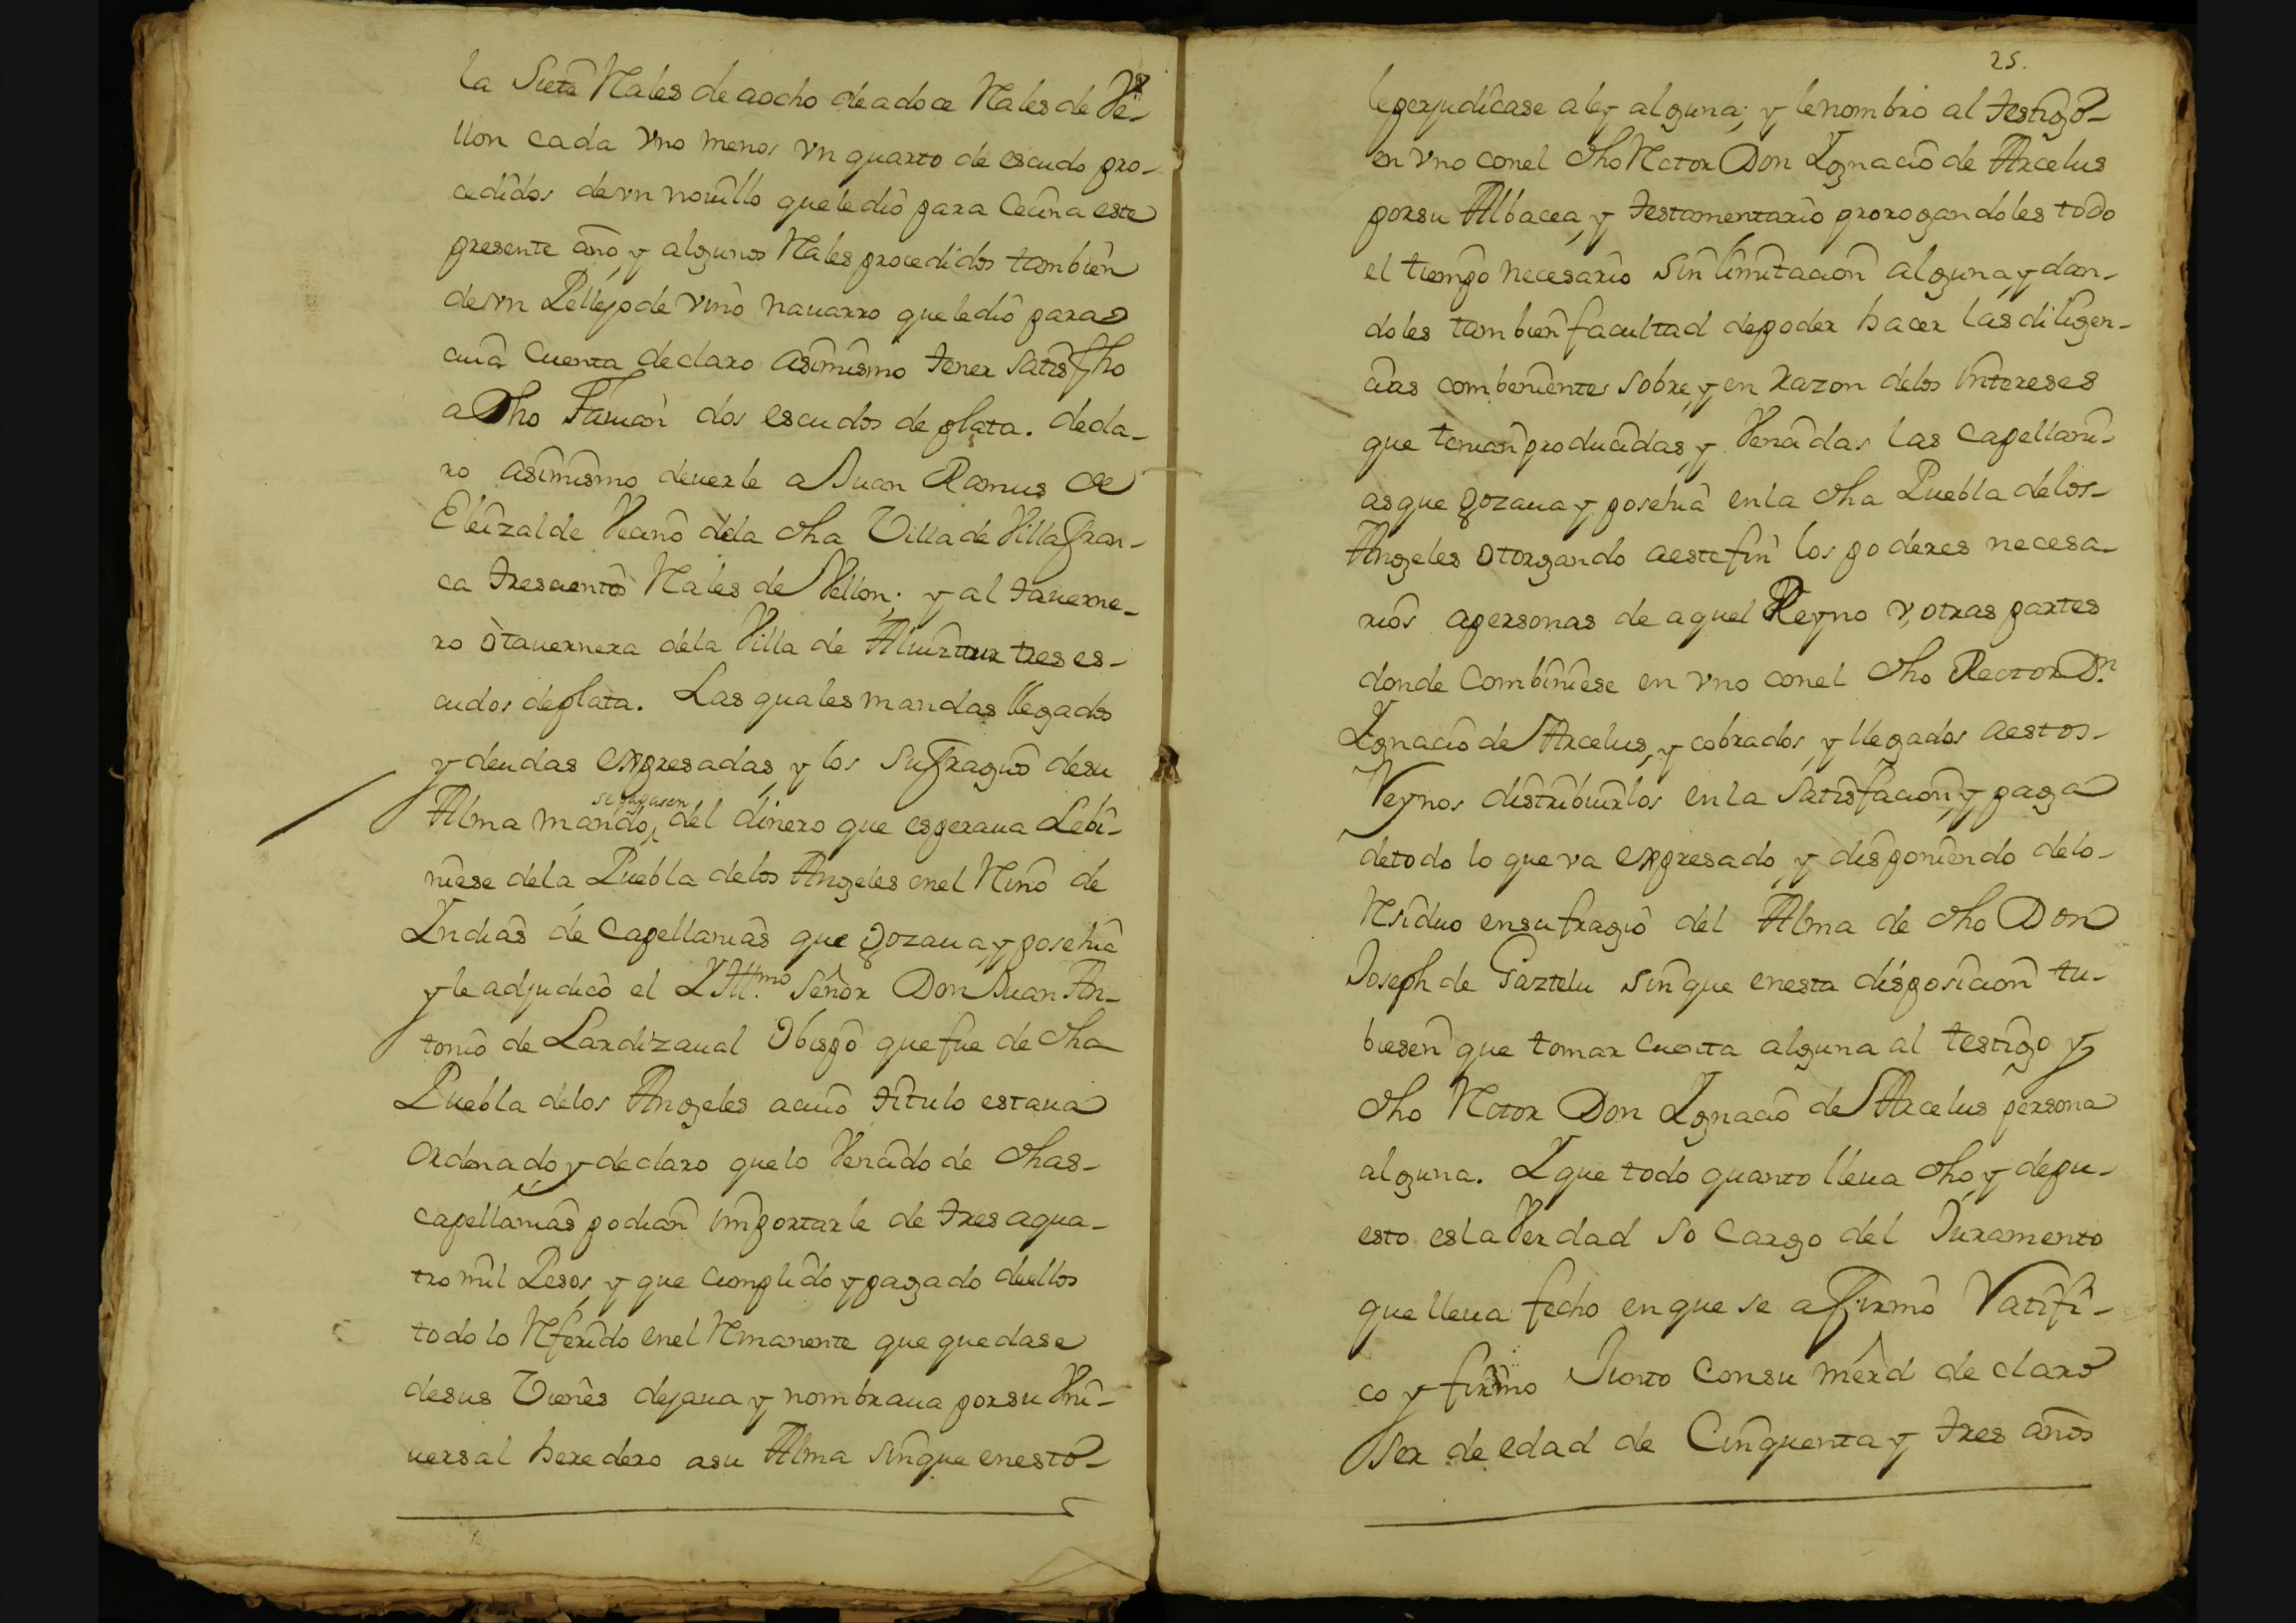 la Siete Rales de aocho de adoce Rales de Ve-
llon cada vno menos vn quarto de escudo pro-
cedidos de vn nouillo que le dio para Cecina este
presente año y algunos Rales procedidos tambien
de vn Pellejo de vino nauarro que le dio para
cuia Cuenta declaro asimismo tener satisfho
a Dho dos escudos de plata. decla-
ro asimismo deuerle a Juan Ramus de
Eleizalde Vecino dela dha Villa de Villafran-
ca trescientos Rales de Vellon; y al tauerne-
ro ò tauernera dela Villa de tres es-
cudos de plata. Las quales mandas llegados
y deudas expresadas, y los sufragios de su
Alma mando, se pagasen del dinero que esperaua Lebi-
niese dela Puebla delos Angeles enel Rino de
Yndias de Capellanias que gozaua, y posehia
y le adjudicò el Yll.mo Señor Don Juan An-
tonio de Lardizaual Obispo que fue de dha
Puebla delos Angeles acuio titulo estaua
Ordenado, y declaro quelo Vencido de dhas-
capellanias podian importarle de tres aqua-
tro mil Pesos, y que cumplido y pagado deellos
todo lo Rferido enel Rmanente que quedase
desus Vienes dejaua y nombraua porsu Vni-
uersal heredero asu Alma sinque enesto-
25.
leperjudicase aley alguna; y lenombro al testigo-
en vno conel dho Rctor Don Ygnacio de Arcelus
porsu Albacea, y testamentario prorogandoles todo
el tiempo necesario sin limitacion alguna, y dan-
doles tambien facultad depoder hacer las diligen-
cias combenientes sobre, y en razon delos intereses
que tenian producidas, y Vencidas las capellani-
as que gozaua y posehia enla dha Puebla delos-
Angeles otorgando aestefin los poderes necesa-
rios apersonas de aquel Reyno y, otras partes
donde Combiniese en vno conel dho Rector Dn
Ygnacio de Arcelus, y cobrados, y llegados aestos-
Reynos distribuirlos enla Satisfacion, y paga
detodo lo que va expresado, y disponiendo delo-
Rsiduo ensufragio del Alma de dho Don
Joseph de Gaztelu sinque enesta disposicion tu-
biesen que tomar cuenta alguna al testigo y
dho Rctor Don Ygnacio de Arcelus persona
alguna. Y que todo quanto lleua dho, y depu-
esto esla Verdad so cargo del Juramento
quelleua fecho enque se affirmò Ratifi-
co y firmo Junto consu merd declaro
ser de edad de Cinquenta y tres años